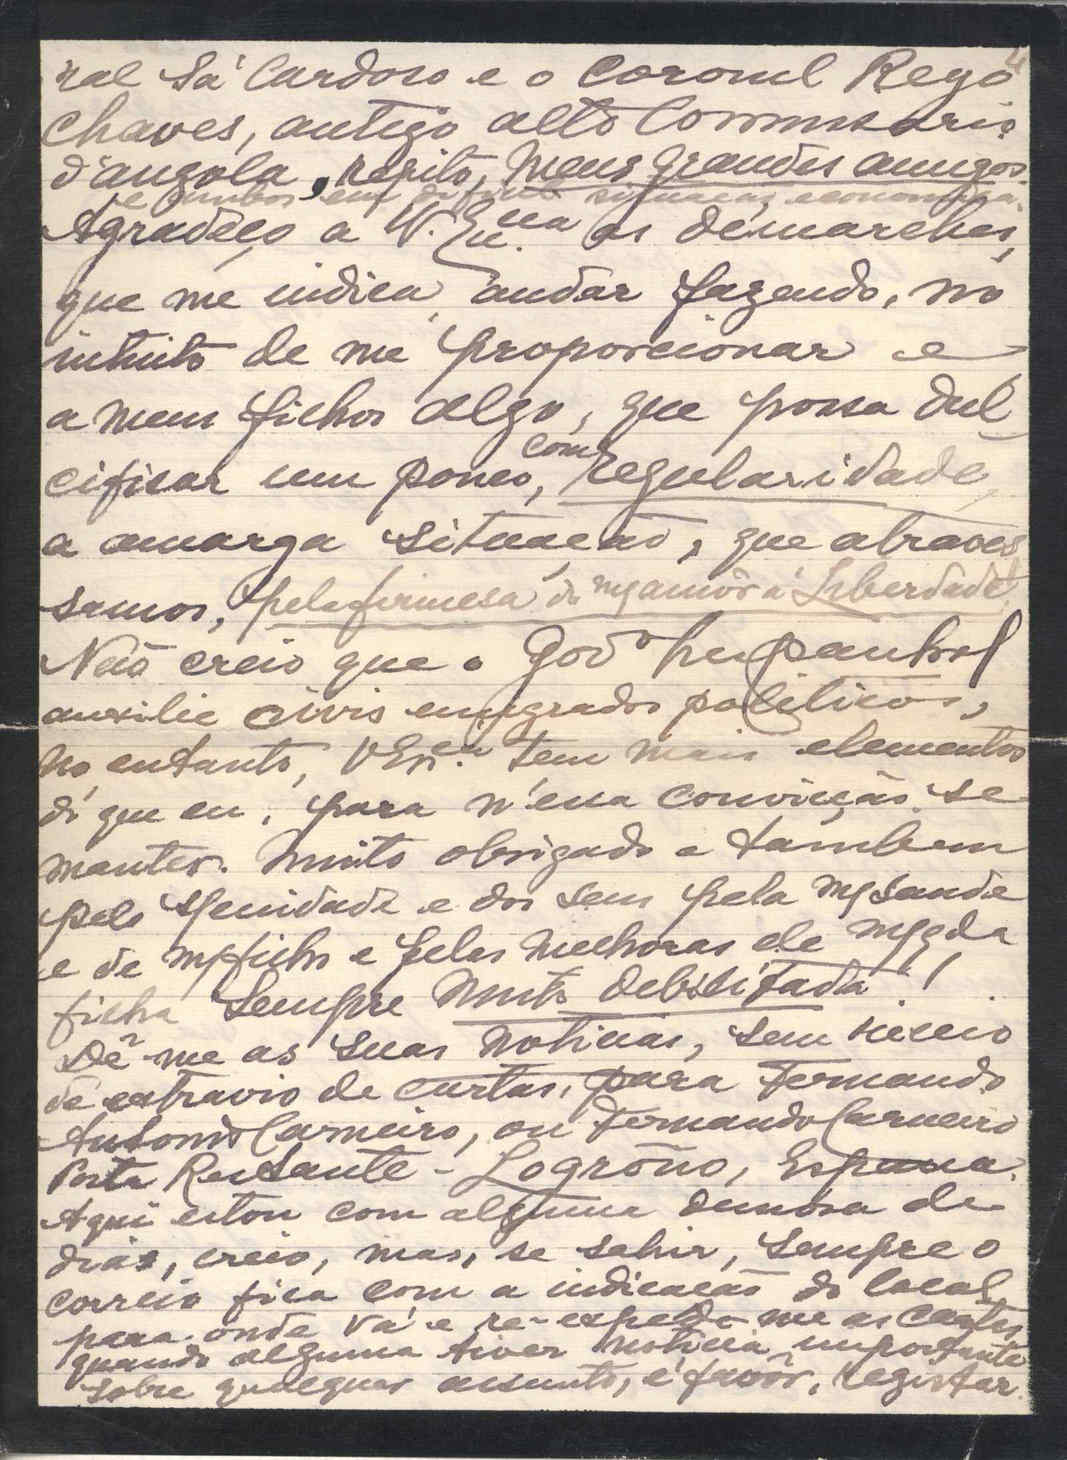 4
ral Sá Cardoso e o coronel Rego
Chaves, antigo alto Commissario
d'angola, repito, meus grandes amigos.
e ambos em dificil situação economica.
Agradeço a V. Exª as démarches,
que me indica andar fazendo, no
intuito de me proporcionar e
a meus filhos algo, que possa dul
cificar um pouco, com regularidade,
a amarga situação, que atraves
samos, pela firmesa do mº amôr á Liberdade!
Não creio que o Govº hespanhol
auxilie civis emigrados politicos,
no entanto, V Exª tem mais elementos
do que eu, para n'essa convicção se
manter. Muito obrigado a tambem
pelo e dos seus pela mª saude
e de meus filhos e pelas melhoras de mª qda
filha sempre muito debilitada!
Dê-me as suas noticias, sem receio
de extravio de cartas, para Fernando
Antonio Carneiro, ou Fernando Carneiro
Posta Restante - Logroño, España.
Aqui estou com alguma demora de
dias, creio, mas, se sahir, sempre o
correio fica com a indicação do local
para onde vá e re-expede-me as cartas
quando alguma tiver noticia importante
sobre qualquer assunto, é favôr, registar.